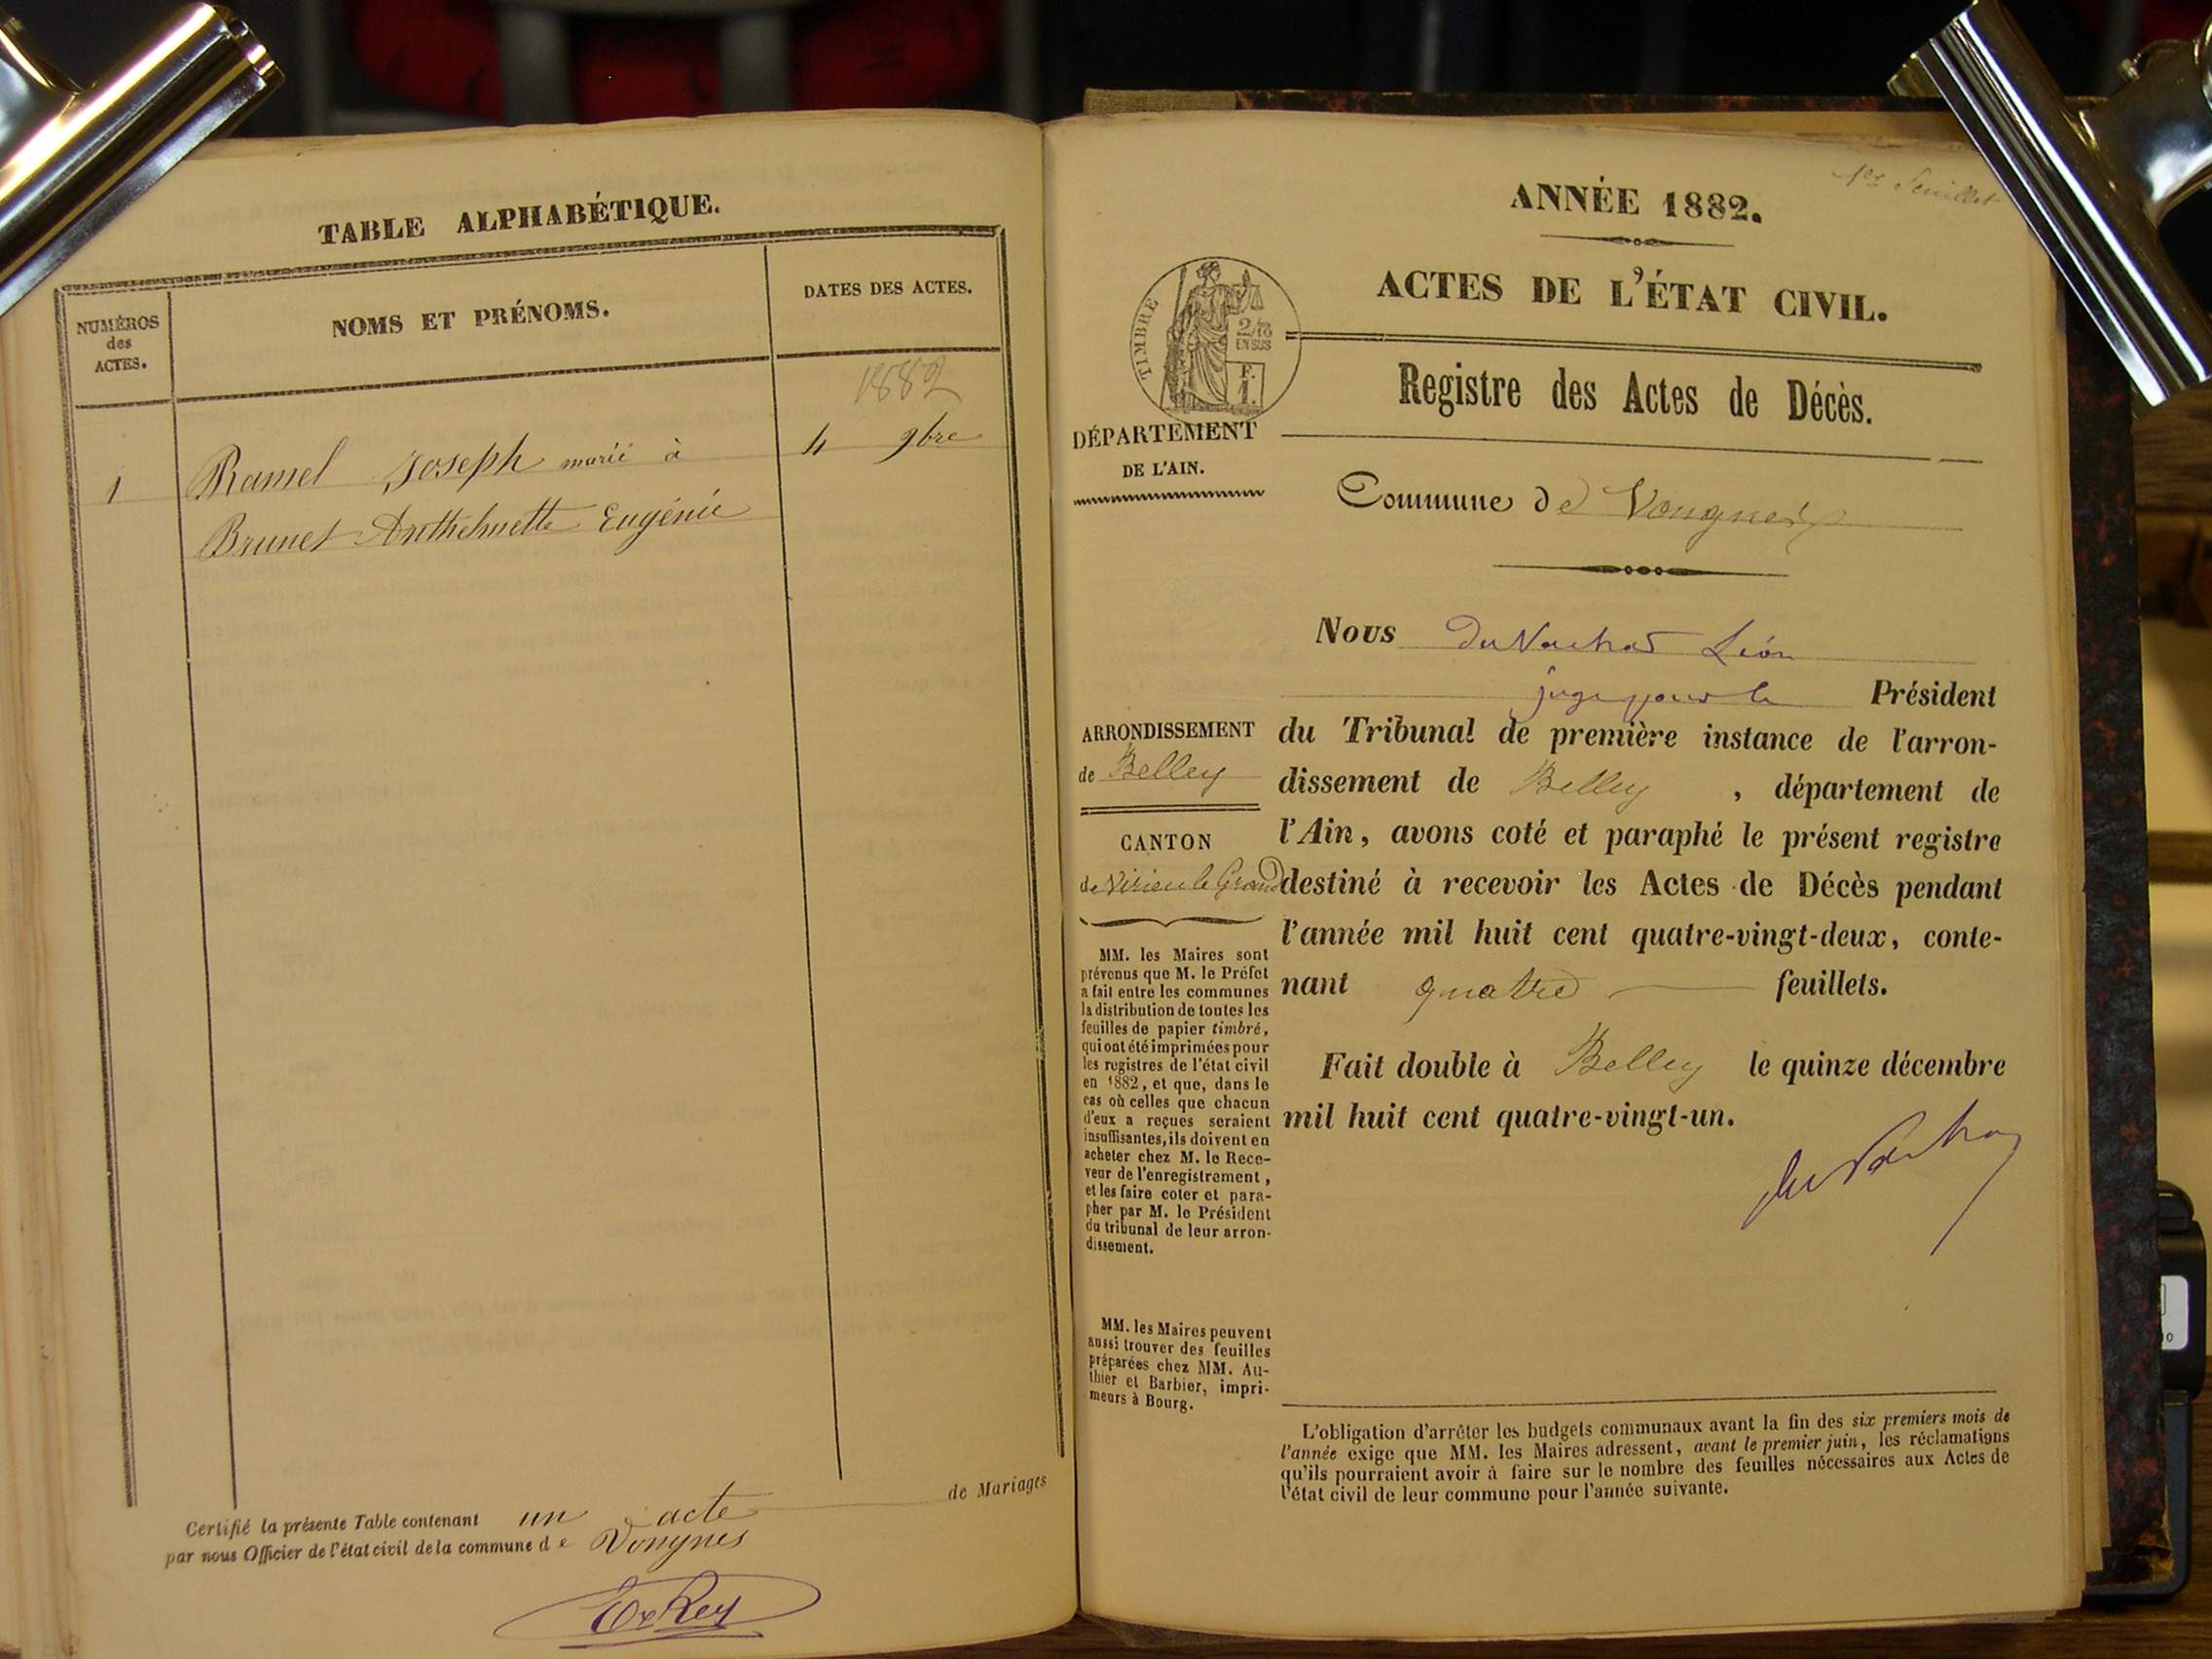 TABLE ALPHABÉTIQUE.
NUMÉROS
des
ACTES.
NOMS ET PRÉNOMS.
DATES DES ACTES.
1882
1 Ramel Joseph marié à 4 9bre
Brunet Anthelmette Eugénie
Certifié la présente Table contenant un acte de Mariages
par nous Officier de l'état civil de la commune de Vongnes
1er feuillet
ANNÉE 1882.
ACTES DE L'ÉTAT CIVIL.
TIMBRE
2/10
EN SUS
F.
1.
Registre des Actes de Décès.
DÉPARTEMENT
DE L'AIN.
Commune de Vongnes
Nous Léon
juge pour le Président
du Tribunal de première instance de l'arron-
dissement de Belley, département de
l'Ain, avons coté et paraphé le présent registre
destiné à recevoir les Actes de Décès pendant
l'année mil huit cent quatre-vingt-deux, conte-
nant quatre feuillets.
Fait double à Belley le quinze décembre
mil huit cent quatre-vingt-un.
ARRONDISSEMENT
de Belley
CANTON
de Virieu le Grand
MM. les Maires sont
prévenus que M. le Préfet
a fait entre les communes
la distribution de toutes les
feuilles de papier timbré,
qui ont été imprimées pour
les registres de l'état civil
en 1882, et que, dans le
cas où celles que chacun
d'eux a reçues seraient
insuffisantes, ils doivent en
acheter chez M. le Rece-
veur de l'enregistrement,
et les faire coter et para-
pher par M. le Président
du tribunal de leur arron-
dissement.
MM. les Maires peuvent
aussi trouver des feuilles
préparées chez MM. Au-
thier et Barbier, impri-
meurs à Bourg.
L'obligation d'arrêter les budgets communaux avant la fin des six premiers mois de
l'année exige que MM. les Maires adressent, avant le premier juin, les réclamations
qu'ils pourraient avoir à faire sur le nombre des feuilles nécessaires aux Actes de
l'état civil de leur commune pour l'année suivante.